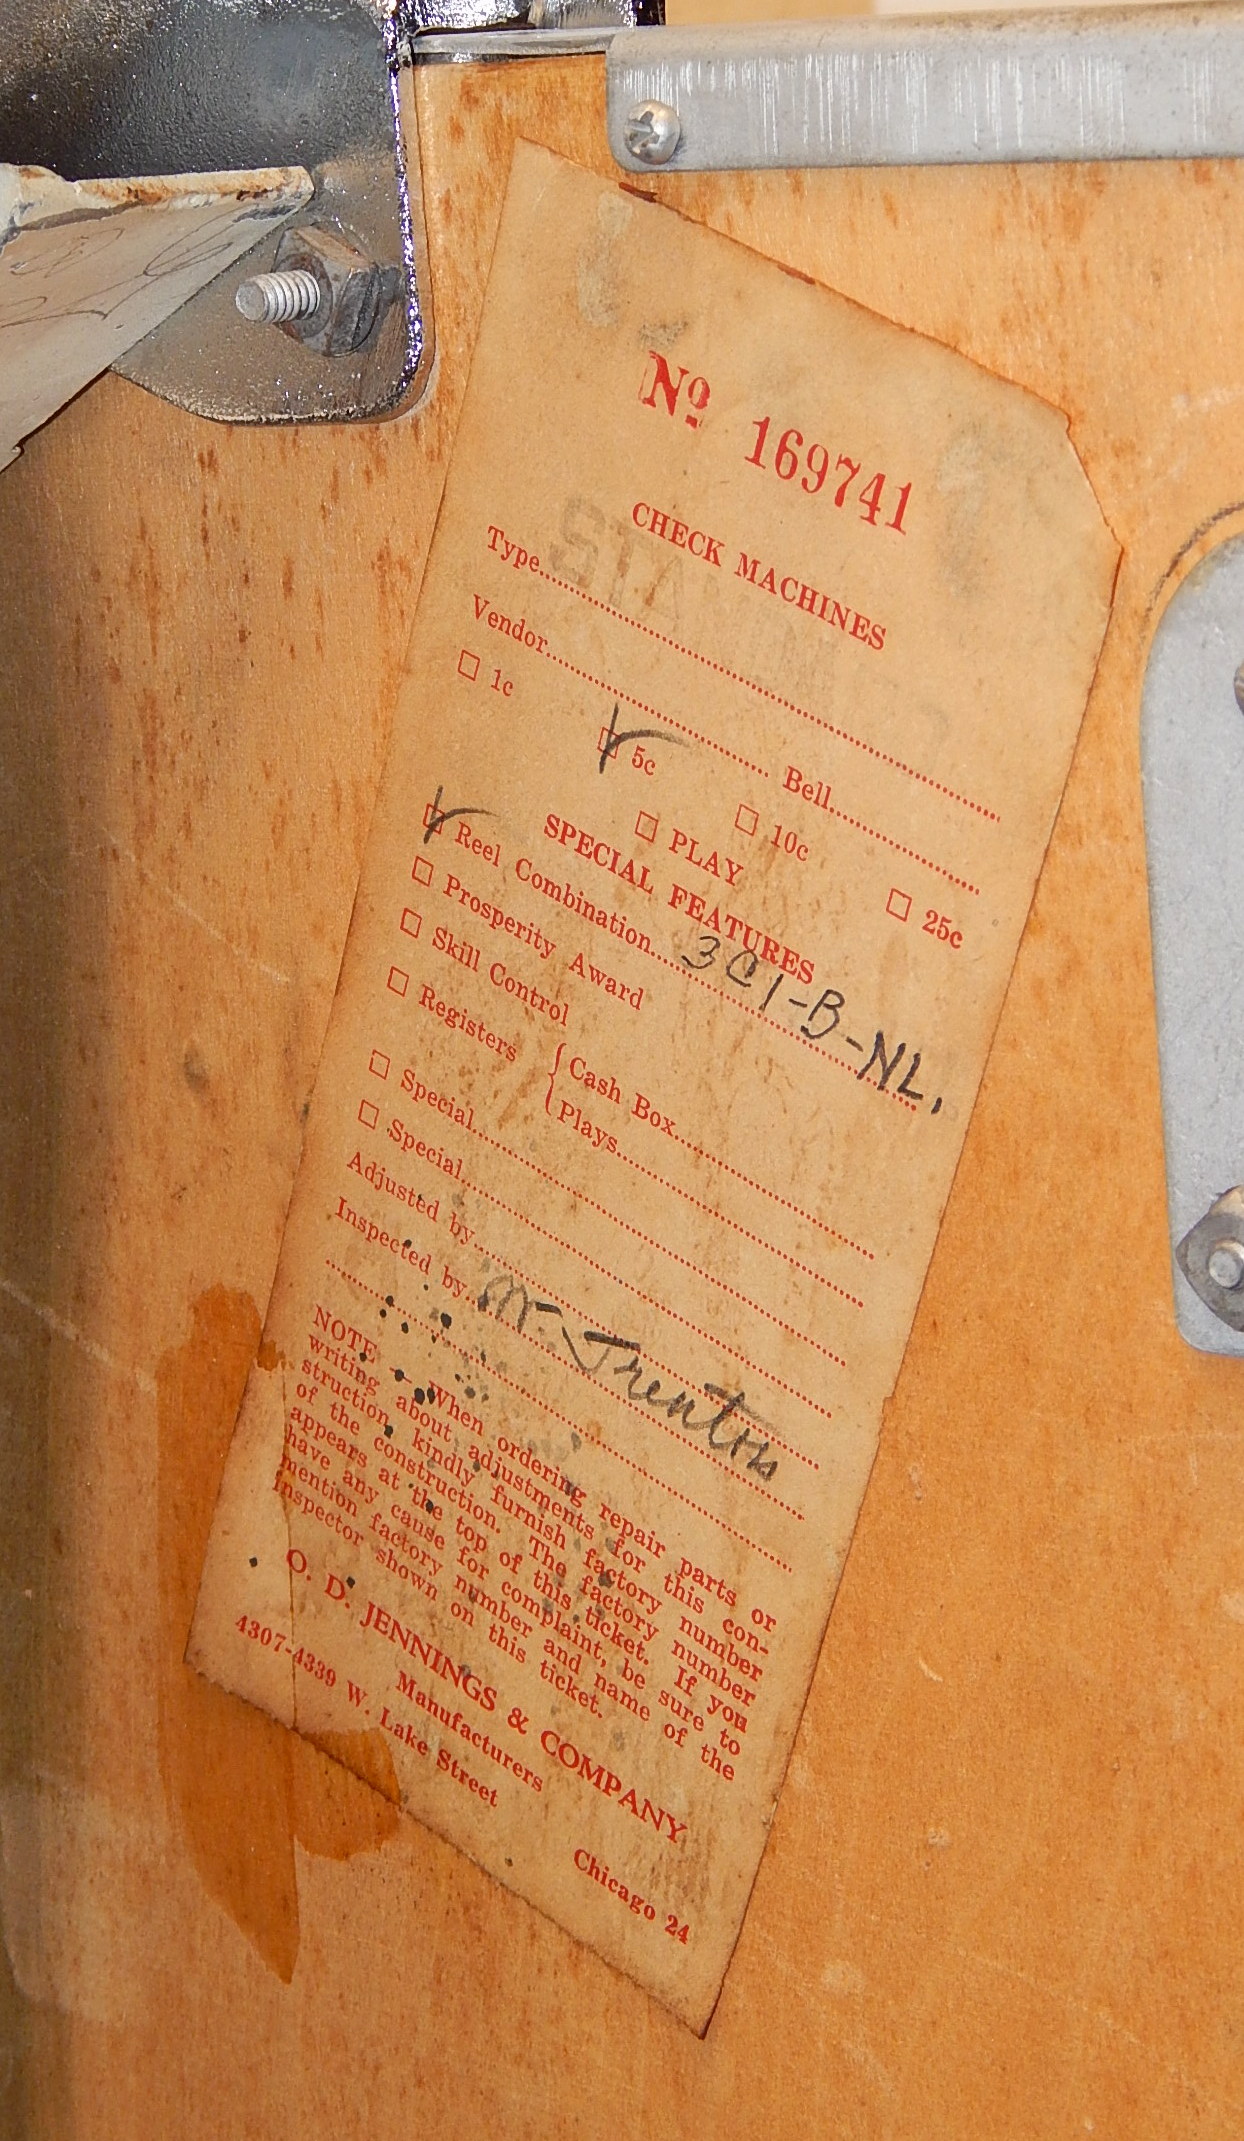 Nº 169741
CHECK MACHINES
Type
Vendor Bell
☐ 1c ☑ 5c ☐ 10c ☐ 25c
☐ PLAY
SPECIAL FEATURES
☑ Reel Combination 3C1-B-NL.
☐ Prosperity Award
☐ Skill Control
☐ Registers { Cash Box
Plays
☐ Special
☐ Special
Adjusted by
Inspected by W. Trenton
NOTE — When ordering repair parts or
writing about adjustments for this con-
struction, kindly furnish factory number
of the construction. The factory number
appears at the top of this ticket. If you
have any cause for complaint, be sure to
mention factory number and name of the
inspector shown on this ticket.
O. D. JENNINGS & COMPANY
Manufacturers
4307-4339 W. Lake Street Chicago 24